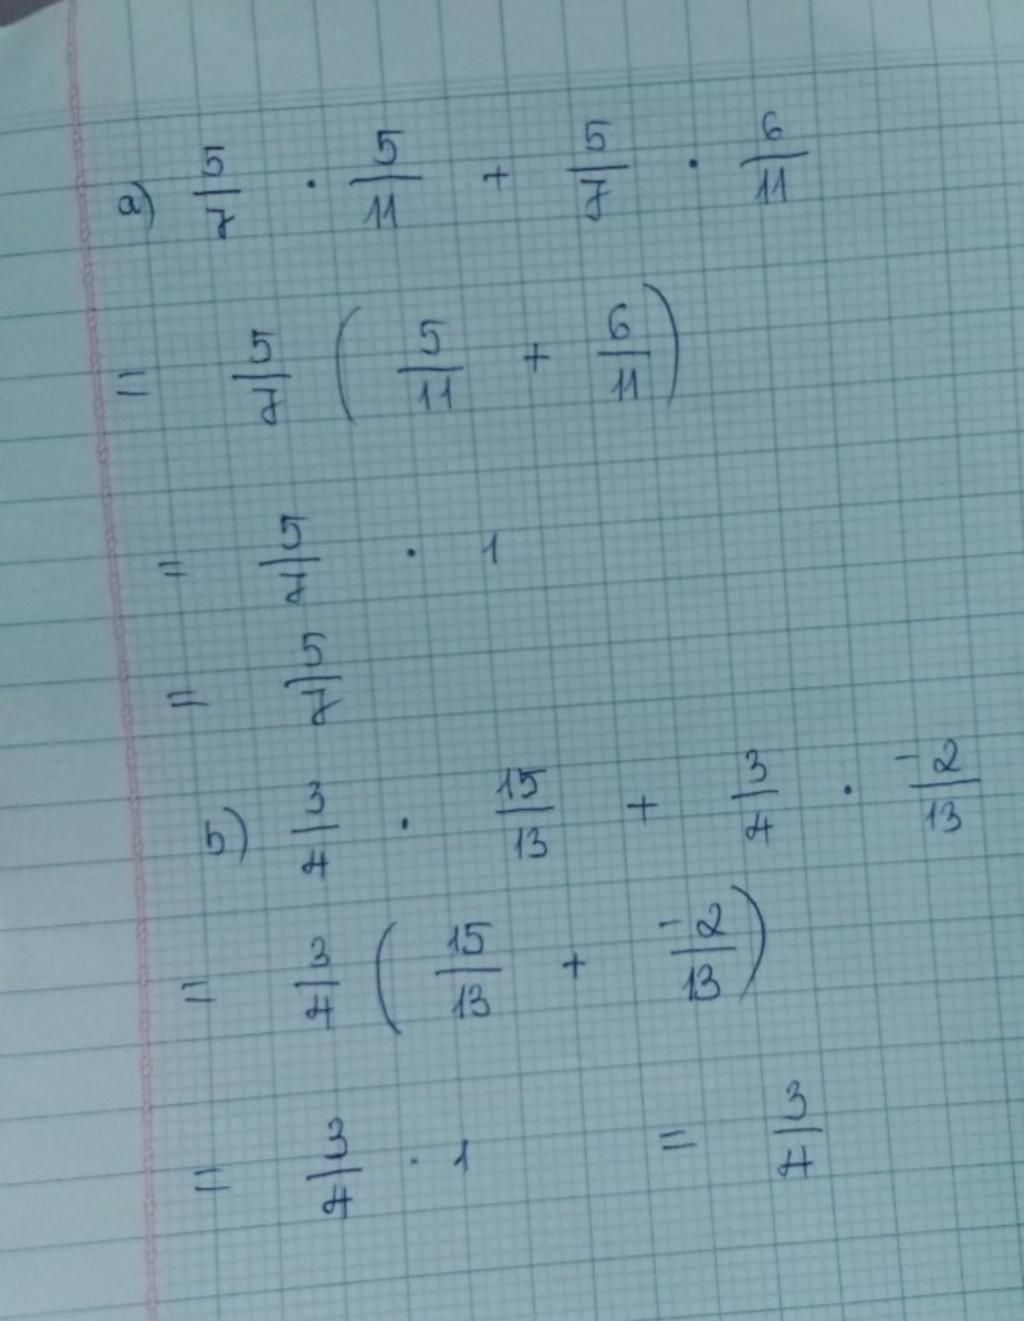 a) 5/7 · 5/11 + 5/7 · 6/11
= 5/7 ( 5/11 + 6/11 )
= 5/7 · 1
= 5/7
b) 3/4 · 15/13 + 3/4 · -2/13
= 3/4 ( 15/13 + -2/13 )
= 3/4 · 1 = 3/4